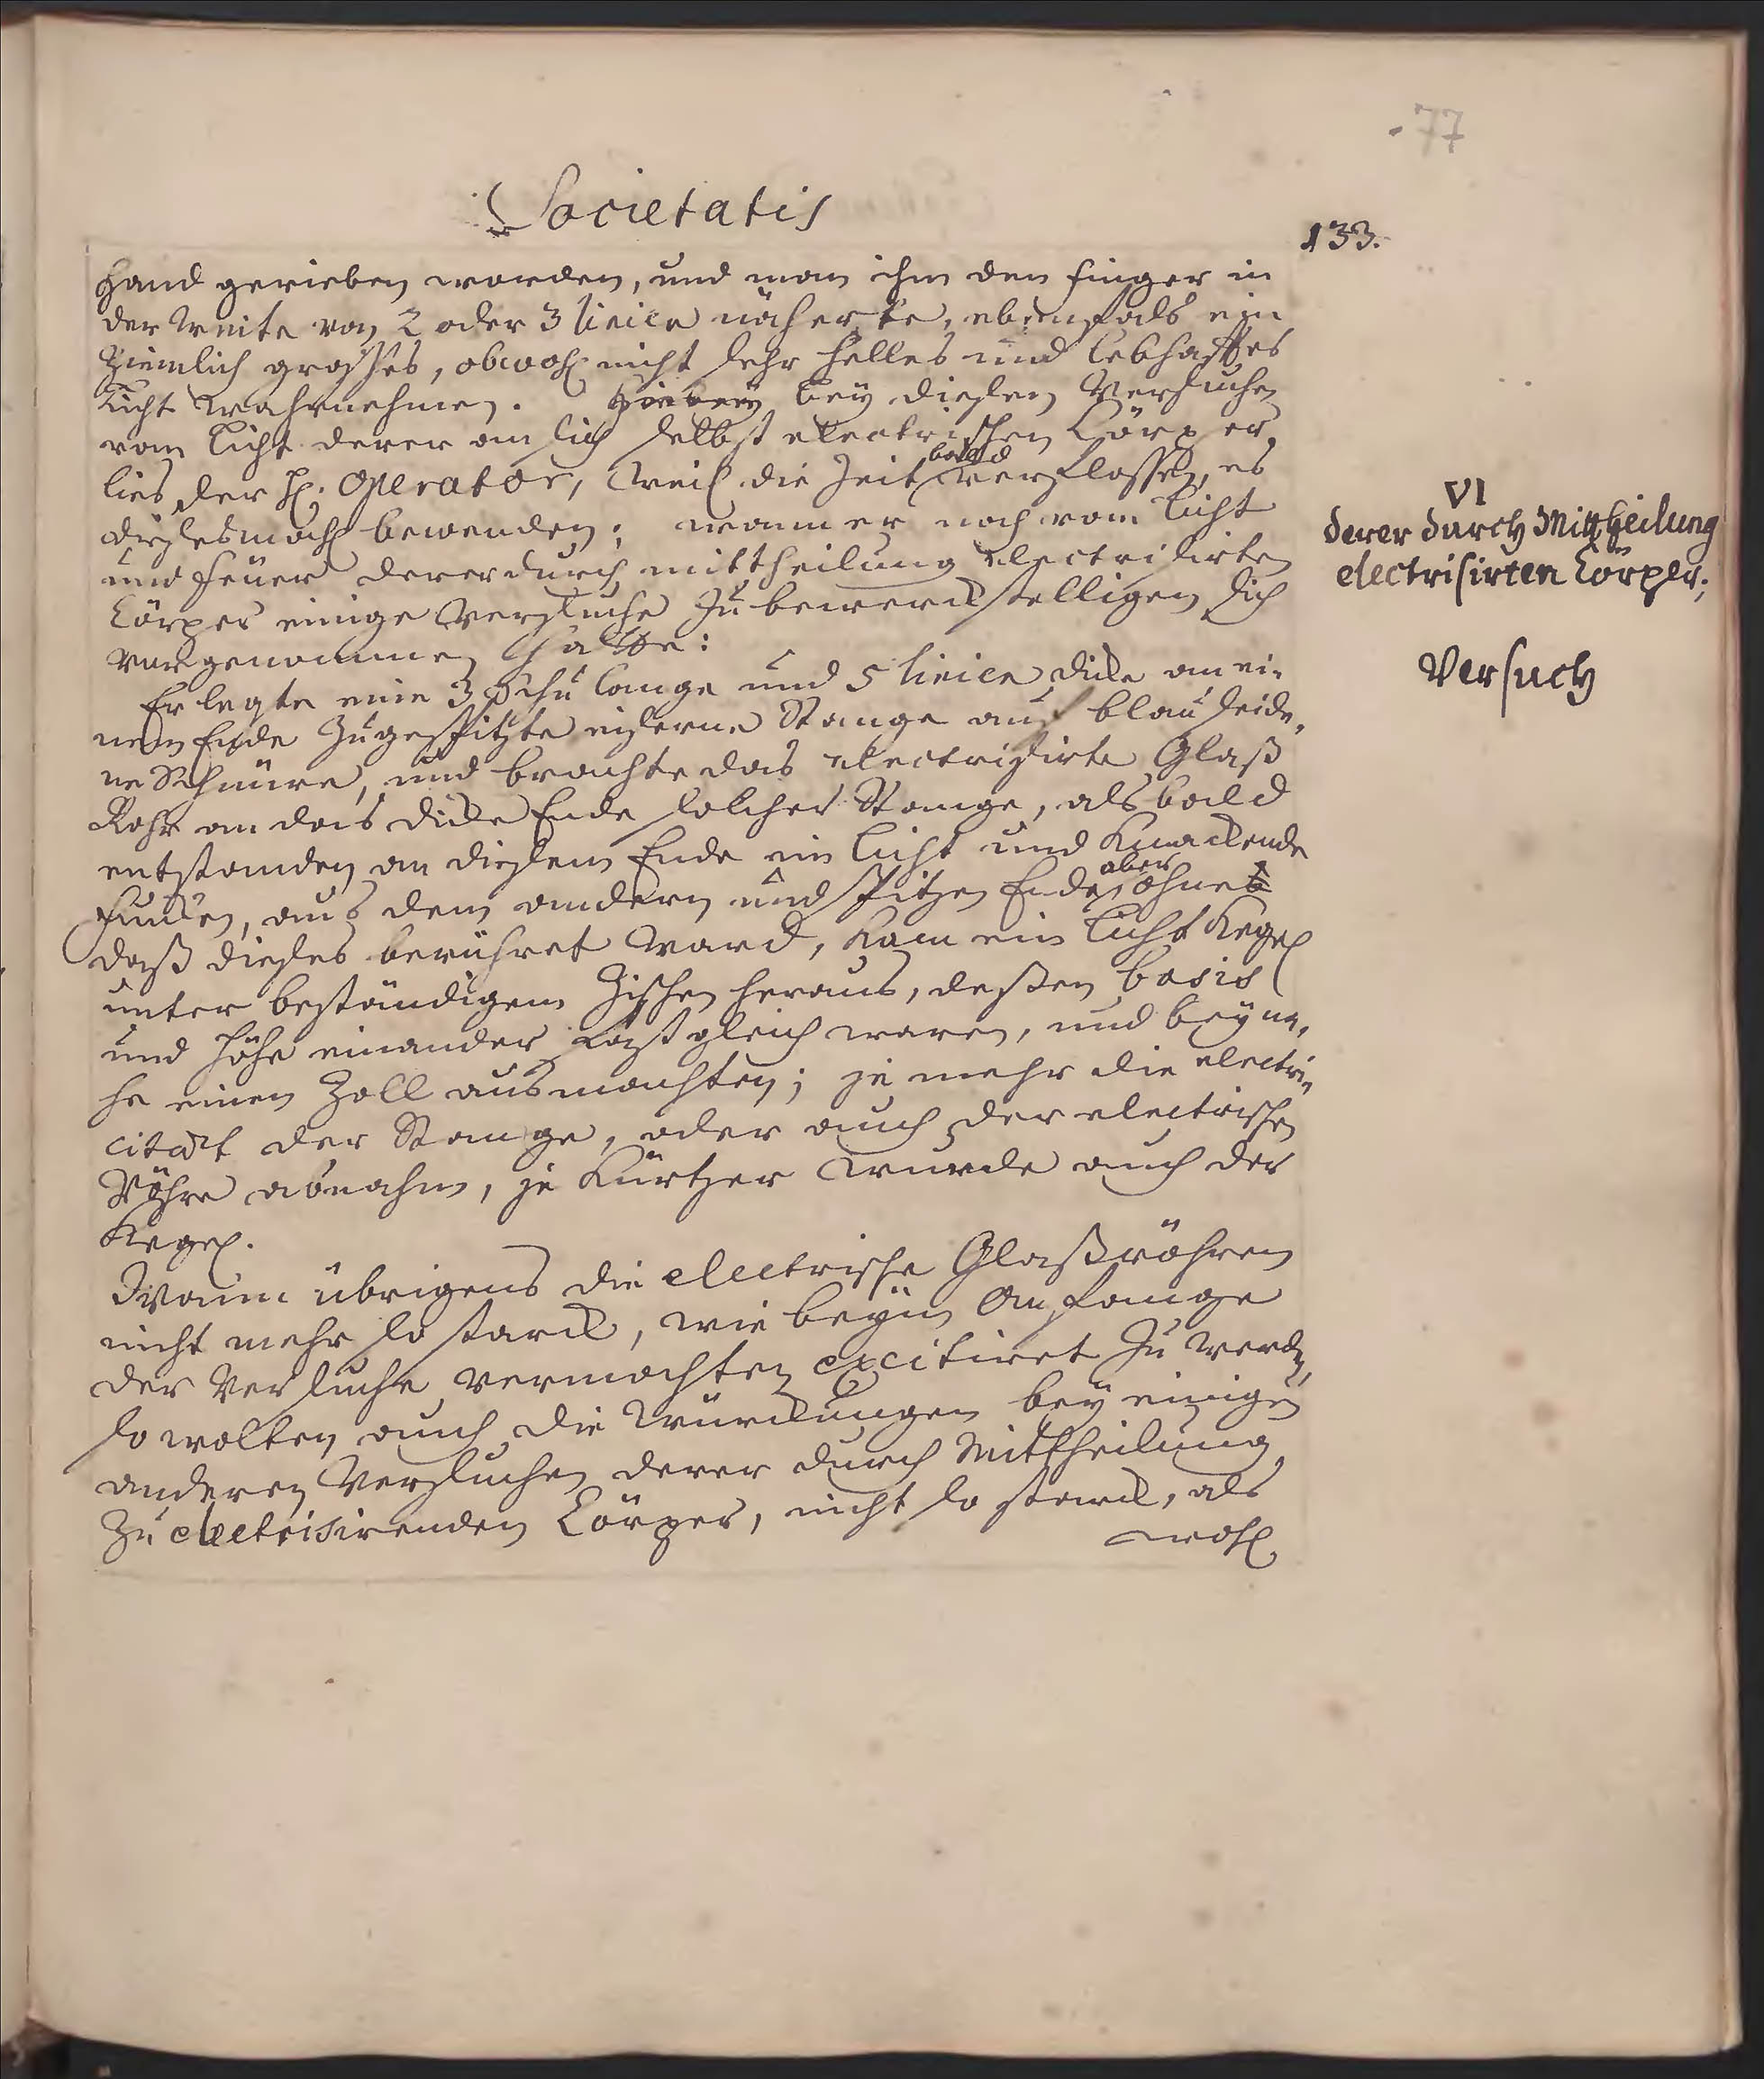 77
Societatis
133.
Hand gerieben worden, und man ihm den Finger in
der Weite von 2 oder 3 linien näherte, ebenfals ein
ziemlich grosses, obwohl nicht sehr helles und lebhafftes
Licht wahrnehmen. Hierbey bey diesen Versuchen
vom Licht derer an sich selbst electrischen Cörper,
lies der H. Operator, weil die Zeit bald verflossen, es
diesesmahl bewenden; wann er noch vom Licht
und Feuer derer durch mittheilung electrisirten
Cörper einige Versuche zu bewerckstelligen sich
vorgenommen hatte:
Er legte eine 3 Schu lange und 5 linien dicke an ei-
nem Ende zugespitzte eiserne Stange auf blau seide-
ne Schnüre, und brachte das electrisirte Glaß
Rohr an das dicke Ende solcher Stange, alsbald
entstanden an diesem Ende ein Licht und Knackende
Funcken, aus dem andern und spitzen Ende aber, ohne
daß dieses berühret ward, kam ein Licht Kegel
unter beständigem Zischen heraus, deßen basis
und Höhe einander fast gleich waren, und beyna-
he einen Zoll ausmachten; je mehr die electri-
citæt der Stange, oder auch der electrischen
Röhre abnahm, je kürtzer wurde auch der
Kegel.
Wann übrigens die electrische Glaßröhren
nicht mehr so starck, wie beym Anfange
der Versuche vermochten excitiret zu werden,
so wolten auch die Würckungen bey einigen
anderen Versuchen derer durch Mittheilung
zu electrisirenden Cörper, nicht so starck, als
wohl
VI
derer durch Mittheilung
electrisirten Cörper;
Versuch